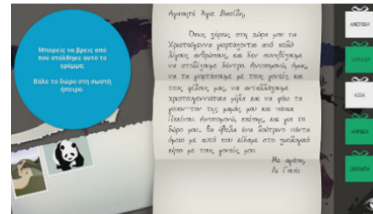 Μπορείς να βρεις από
που στάλθηκε αυτό το
γράμμα;
Βάλε το δώρο στη σωστή
ήπειρο.
Αγαπητέ Άγιε Βασίλη,
Όπως ξέρεις, στη χώρα μου τα
Χριστούγεννα γιορτάζονται από πολύ
λίγους ανθρώπους, και δεν συνηθίζουμε
να στολίζουμε δέντρο. Ανυπομονώ, όμως,
να τα γιορτάσουμε με τους γονείς και
τους φίλους μας, να ανταλλάξουμε
χριστουγεννιάτικα μήλα και να φάω τα
της μαμάς μου και πάπια
Πεκίνου. Ανυπομονώ, επίσης, και για το
δώρο μου. Θα ήθελα ένα λούτρινο πάντα
όμοιο με αυτό που είδαμε στο ζωολογικό
κήπο με τους γονείς μου.
Με αγάπη,
ΑΜΕΡΙΚΗ
ΑΣΙΑ
ΑΦΡΙΚΗ